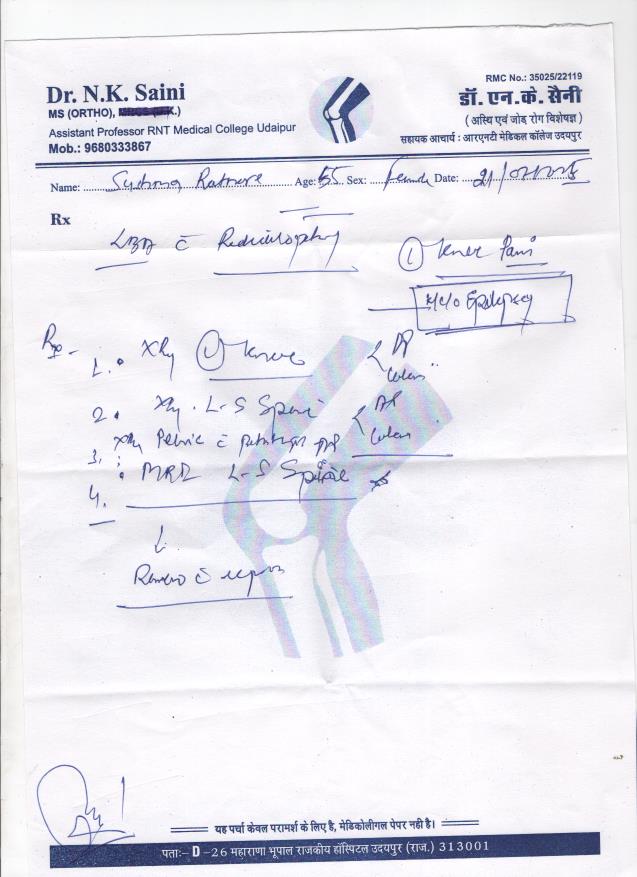 Dr. N.K. Saini
MS (ORTHO),
Assistant Professor RNT Medical College Udaipur
Mob.: 9680333867
RMC No.: 35025/22119
डॉ. एन.के. सैनी
( अस्थि एवं जोड़ रोग विशेषज्ञ )
सहायक आचार्य : आरएनटी मेडिकल कॉलेज उदयपुर
Name: Age: 55 Sex: Female Date: 21/
Rx
LBA c̄ Radiculopathy
Knee Pain
K/C/O Epilepsy
Rx
1. Xray Knee AP
Lateral
2. Xray L-S Spine AP
Lateral
3. Xray Pelvis c̄ AP
4. MRI L-S Spine
↓
Review c̄ reports
यह पर्चा केवल परामर्श के लिए है, मेडिकोलीगल पेपर नही है।
पताः- D -26 महाराणा भूपाल राजकीय हॉस्पिटल उदयपुर (राज.) 313001